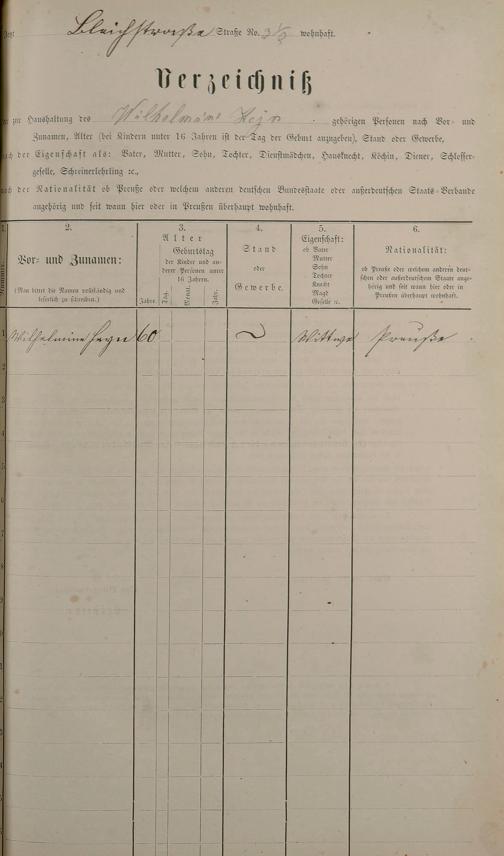 Bleichstraße Straße No. 3 1/2 wohnhaft.
Verzeichniß
der zur Haushaltung des Wilhelmine gehörigen Personen nach Vor- und
Zunamen, Alter (bei Kindern unter 16 Jahren ist der Tag der Geburt anzugeben), Stand oder Gewerbe,
nach der Eigenschaft als: Vater, Mutter, Sohn, Tochter, Dienstmädchen, Hausknecht, Köchin, Diener, Schlosser-
geselle, Schreinerlehrling ꝛc.,
nach der Nationalität ob Preuße oder welchem anderen deutschen Bundesstaate oder außerdeutschen Staats-Verbande
angehörig und seit wann hier oder in Preußen überhaupt wohnhaft.
1. 2. 3. 4. 5. 6.
Nummer.
Vor- und Zunamen:
(Man bittet die Namen vollständig und
leserlich zu schreiben.)
Alter
Geburtstag
der Kinder und an-
derer Personen unter
16 Jahren.
Jahre. Tag. Monat. Jahr.
Stand
oder
Gewerbe.
Eigenschaft:
ob Vater
Mutter
Sohn
Tochter
Knecht
Magd
Geselle ꝛc.
Nationalität:
ob Preuße oder welchem anderen deut-
schen oder außerdeutschen Staate ange-
hörig und seit wann hier oder in
Preußen überhaupt wohnhaft.
1 Wilhelmine 60 Wittwe Preuße
2
3
4
5
6
7
8
9